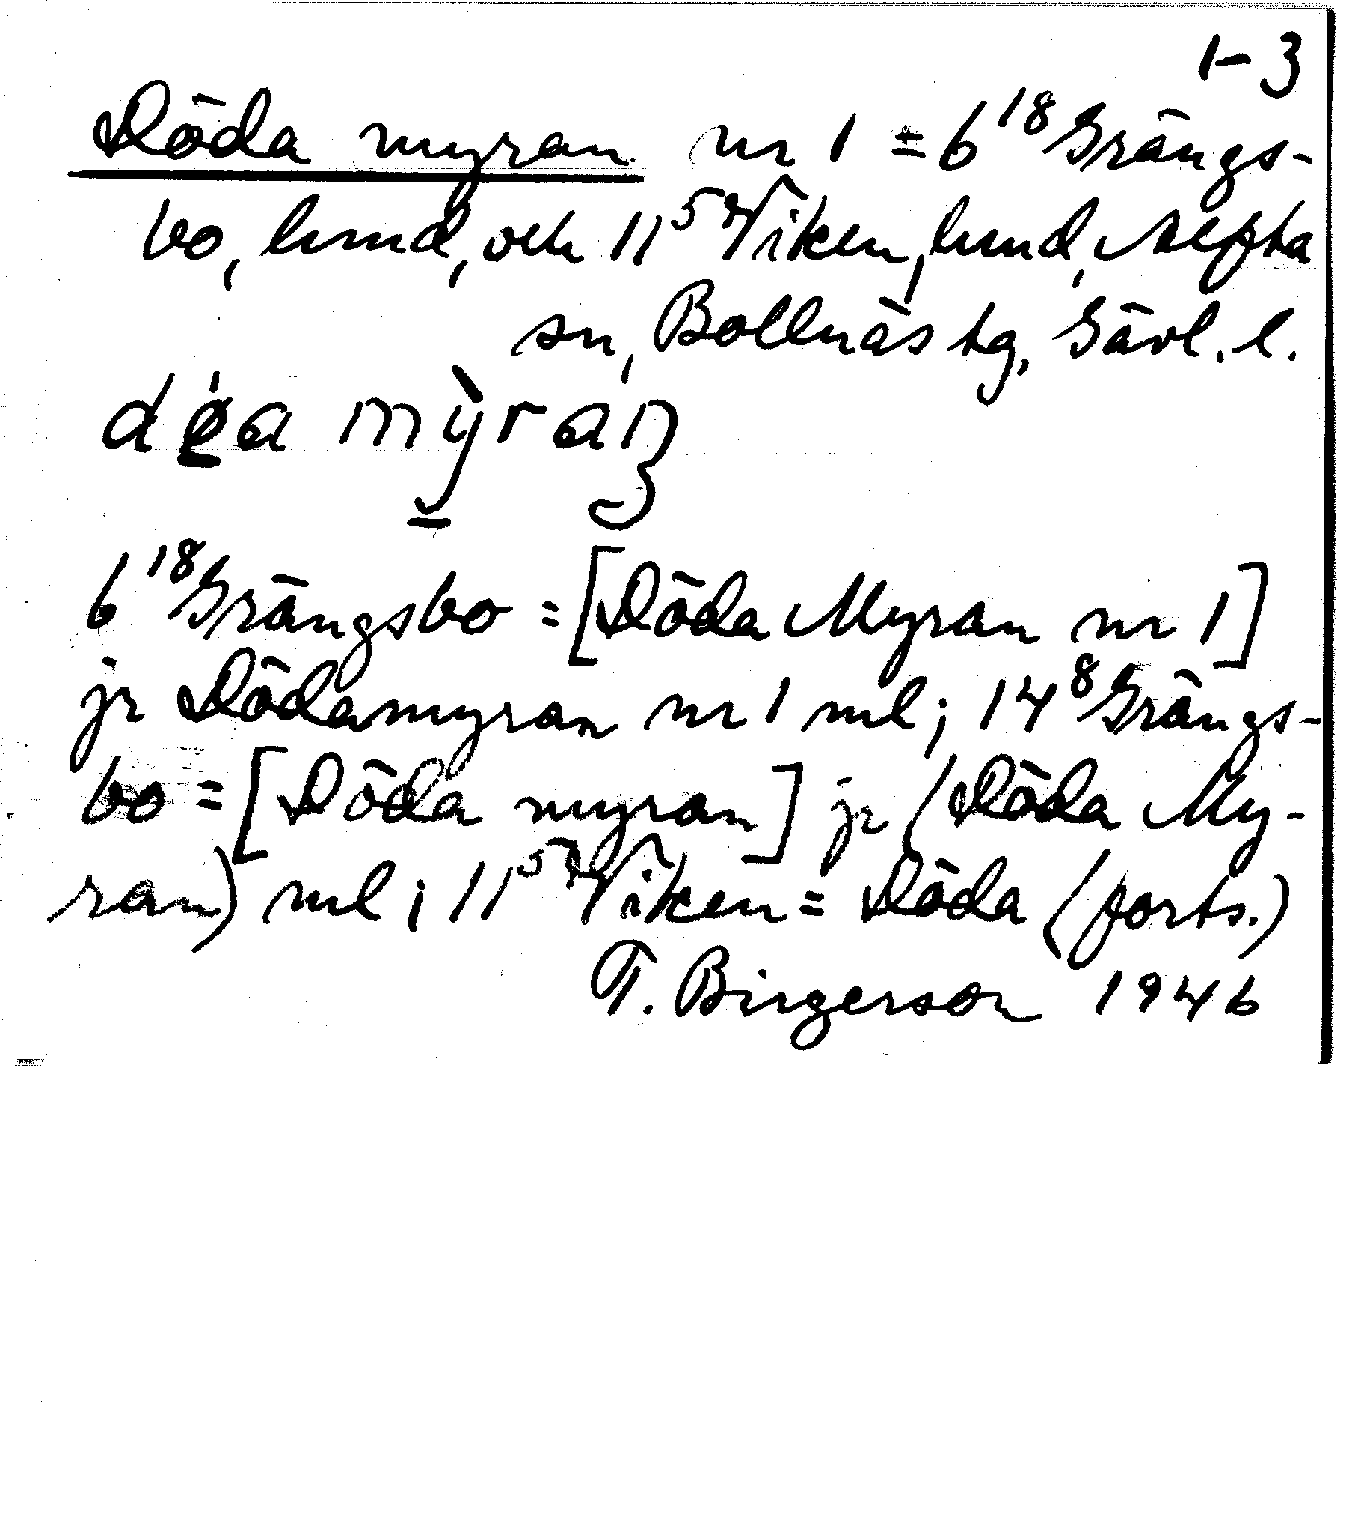 1-3
Döda myran nr 1 = 6¹⁸ Grängs-
bo, hmd, och 11⁵⁷ Viken, hmd, Alfta
sn, Bollnäs tg, Gävl. l.
6¹⁸ Grängsbo = [Döda Myran nr 1]
jr Dödamyran nr 1 ml; 14⁸ Grängs-
bo = [Döda myran] jr (Döda My-
ran) ml; 11⁵⁷ Viken = Döda (forts.)
T. Birgerson 1946